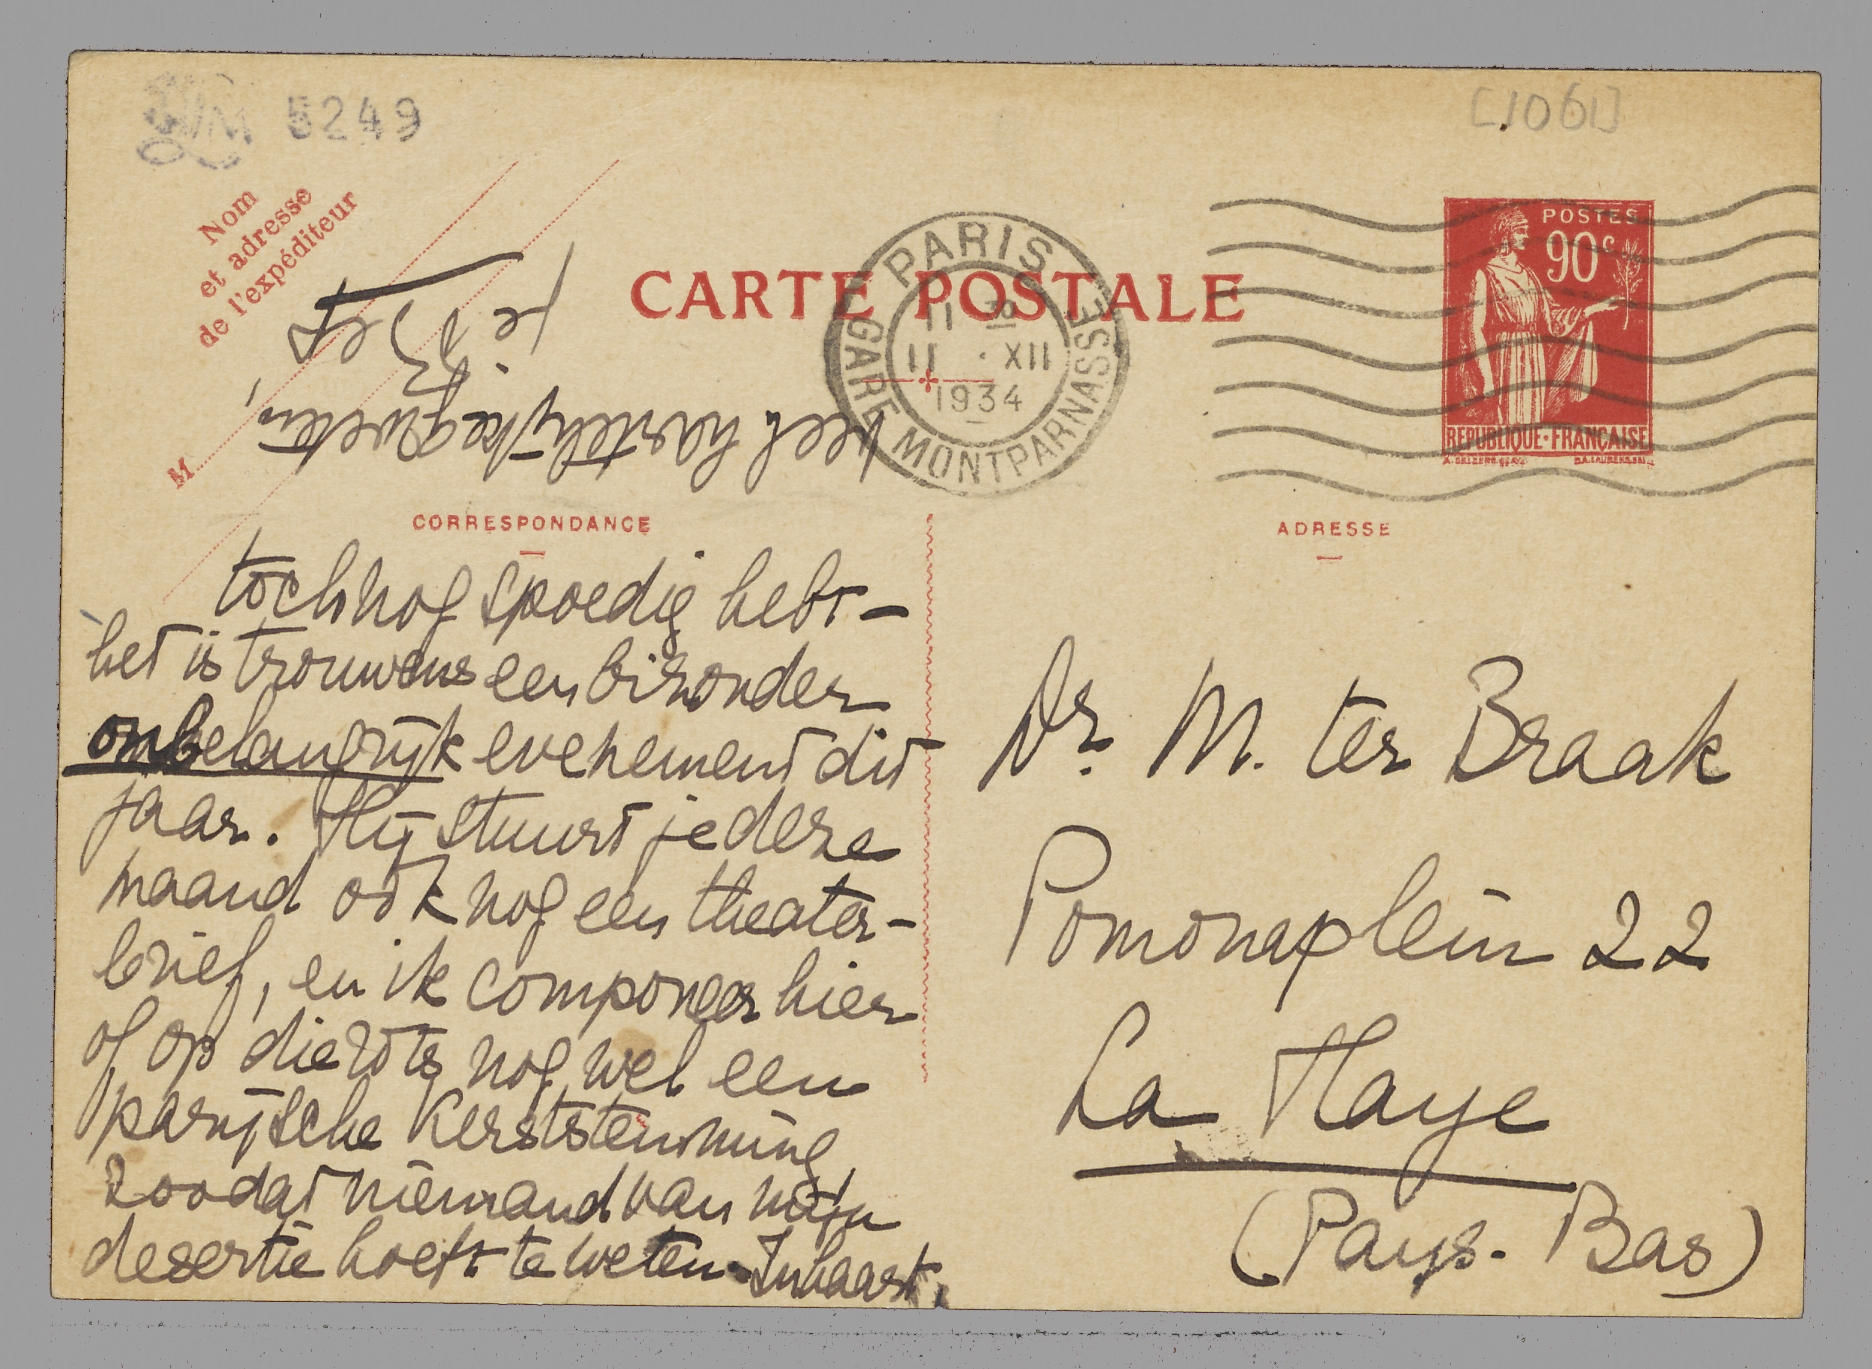 5249
[1061]
Nom
et adresse
de l'expéditeur
M
CARTE POSTALE
PARIS
GARE MONTPARNASSE
11
11 · XII
1934
POSTES
90c
REPUBLIQUE·FRANÇAISE
CORRESPONDANCE
ADRESSE
toch nog spoedig hebt –
het is trouwens een bizonder
onbelangrijk evenement dit
jaar. Hij stuurt je deze
maand ook nog een theater-
brief, en ik componeer hier
of op die rots nog wel een
parijsche Kerststemming
zoodat niemand van mijn
desertie hoeft te weten. In haast,
veel hartelijke groeten,
je Bep
Dr. M. ter Braak
Pomonaplein 22
La Haye
(Pays-Bas)